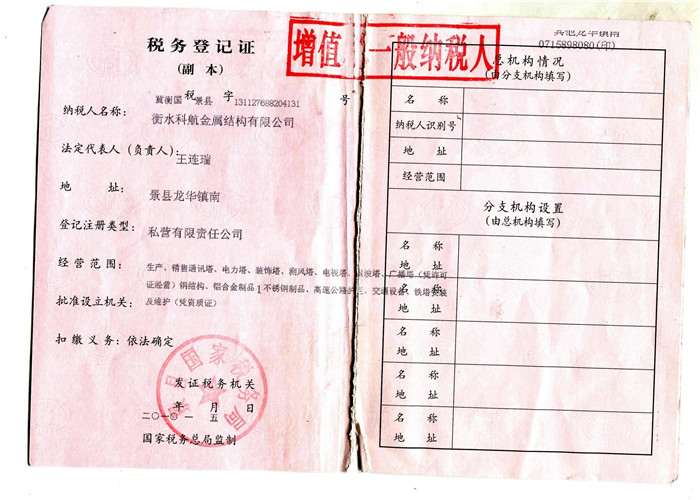 税务登记证
(副 本)
冀衡国 税 景县 字 131127688204131 号
纳税人名称：衡水科航金属结构有限公司
法定代表人（负责人）：王连瑞
地 址：景县龙华镇南
登记注册类型：私营有限责任公司
经营范围：生产、销售通讯塔、电力塔、装饰塔、测风塔、电视塔、微波塔、广播塔（凭许可
证经营）钢结构、铝合金制品1不锈钢制品、高速公路护栏、交通设备、铁塔安装
及维护（凭资质证）
批准设立机关：
扣缴义务：依法确定
国家税务局
发证税务机关
年 月 日
二〇一〇 一 五
国家税务总局监制
增值 一般纳税人
其他龙华镇南
0715898080(印)
总机构情况
(由分支机构填写)
名 称
纳税人识别号
地 址
经营范围
分支机构设置
(由总机构填写)
名 称
地 址
名 称
地 址
名 称
地 址
名 称
地 址
名 称
地 址